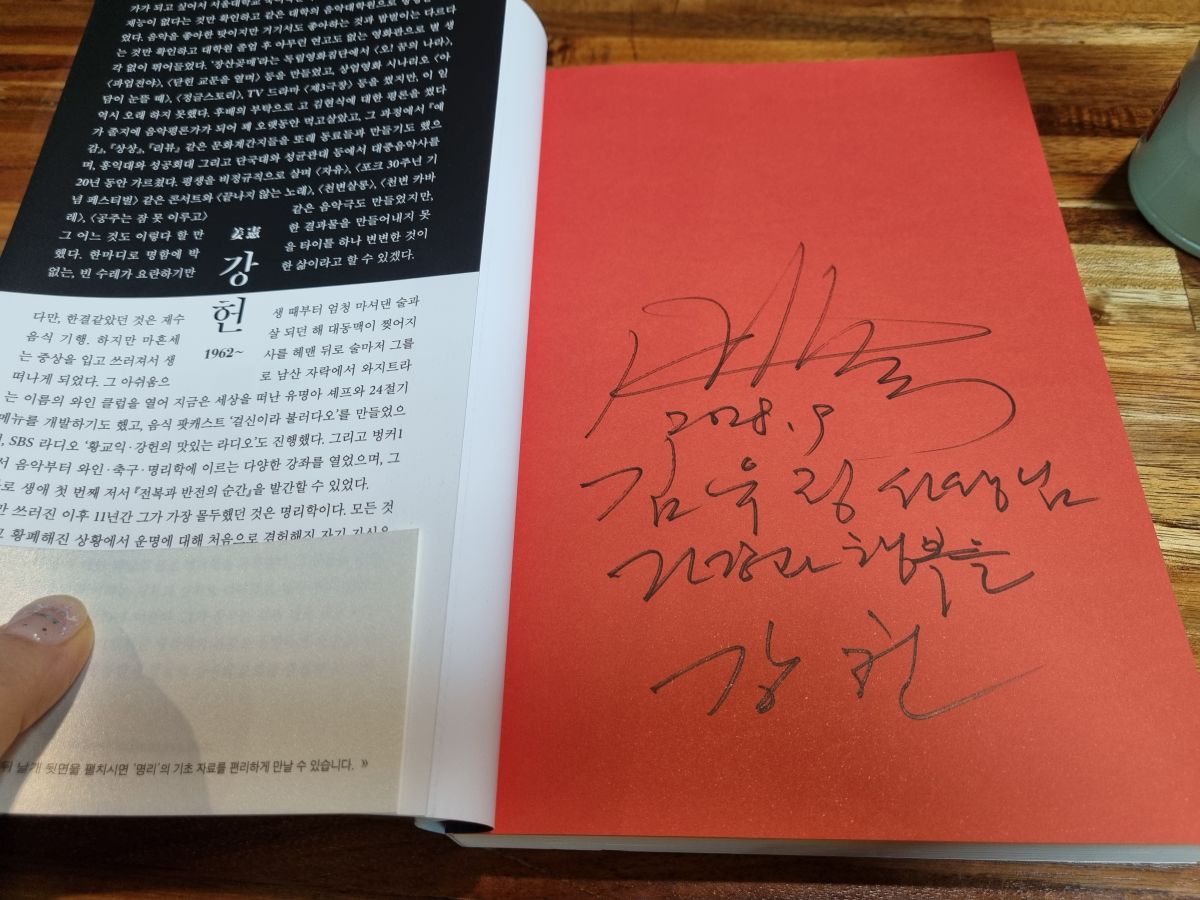 가가 되고 싶어서 서울대학교
재능이 없다는 것만 확인하고 같은 대학의 음악대학원으로
었다. 음악을 좋아한 탓이지만 거기서도 좋아하는 것과 밥벌이는 다르다
는 것만 확인하고 대학원 졸업 후 아무런 연고도 없는 영화판으로 별 생
각 없이 뛰어들었다. '장산곶매'라는 독립영화집단에서 〈오! 꿈의 나라〉,
〈파업전야〉, 〈닫힌 교문을 열며〉 등을 만들었고, 상업영화 시나리오 〈아
담이 눈뜰 때〉, 〈정글스토리〉, TV 드라마 〈제3극장〉 등을 썼지만, 이 일
역시 오래 하지 못했다. 후배의 부탁으로 고 김현식에 대한 평론을 썼다
가 졸지에 음악평론가가 되어 꽤 오랫동안 먹고살았고, 그 과정에서 『예
감』, 『상상』, 『리뷰』 같은 문화계간지들을 또래 동료들과 만들기도 했으
며, 홍익대와 성공회대 그리고 단국대와 성균관대 등에서 대중음악사를
20년 동안 가르쳤다. 평생을 비정규직으로 살며 〈자유〉, 〈포크 30주년 기
념 페스티벌〉 같은 콘서트와 〈끝나지 않는 노래〉, 〈천변살롱〉, 〈천변 카바
레〉, 〈공주는 잠 못 이루고〉 같은 음악극도 만들었지만,
그 어느 것도 이렇다 할 만한 결과물을 만들어내지 못
했다. 한마디로 명함에 박을 타이틀 하나 변변한 것이
없는, 빈 수레가 요란하기만 한 삶이라고 할 수 있겠다.
姜憲
강
헌
1962~
다만, 한결같았던 것은 재수생 때부터 엄청 마셔댄 술과
음식 기행. 하지만 마흔세 살 되던 해 대동맥이 찢어지
는 중상을 입고 쓰러져서 생사를 헤맨 뒤로 술마저 그를
떠나게 되었다. 그 아쉬움으로 남산 자락에서 와지트라
는 이름의 와인 클럽을 열어 지금은 세상을 떠난 유명아 셰프와 24절기
메뉴를 개발하기도 했고, 음식 팟캐스트 '걸신이라 불러다오'를 만들었으
, SBS 라디오 '황교익·강헌의 맛있는 라디오'도 진행했다. 그리고 벙커1
서 음악부터 와인·축구·명리학에 이르는 다양한 강좌를 열었으며, 그
로 생애 첫 번째 저서 『전복과 반전의 순간』을 발간할 수 있었다.
쓰러진 이후 11년간 그가 가장 몰두했던 것은 명리학이다. 모든 것
황폐해진 상황에서 운명에 대해 처음으로 겸허해진 자기 가신을
뒤 날개 뒷면을 펼치시면 '명리'의 기초 자료를 편리하게 만날 수 있습니다. »
선생님
건강과 행복을
강헌